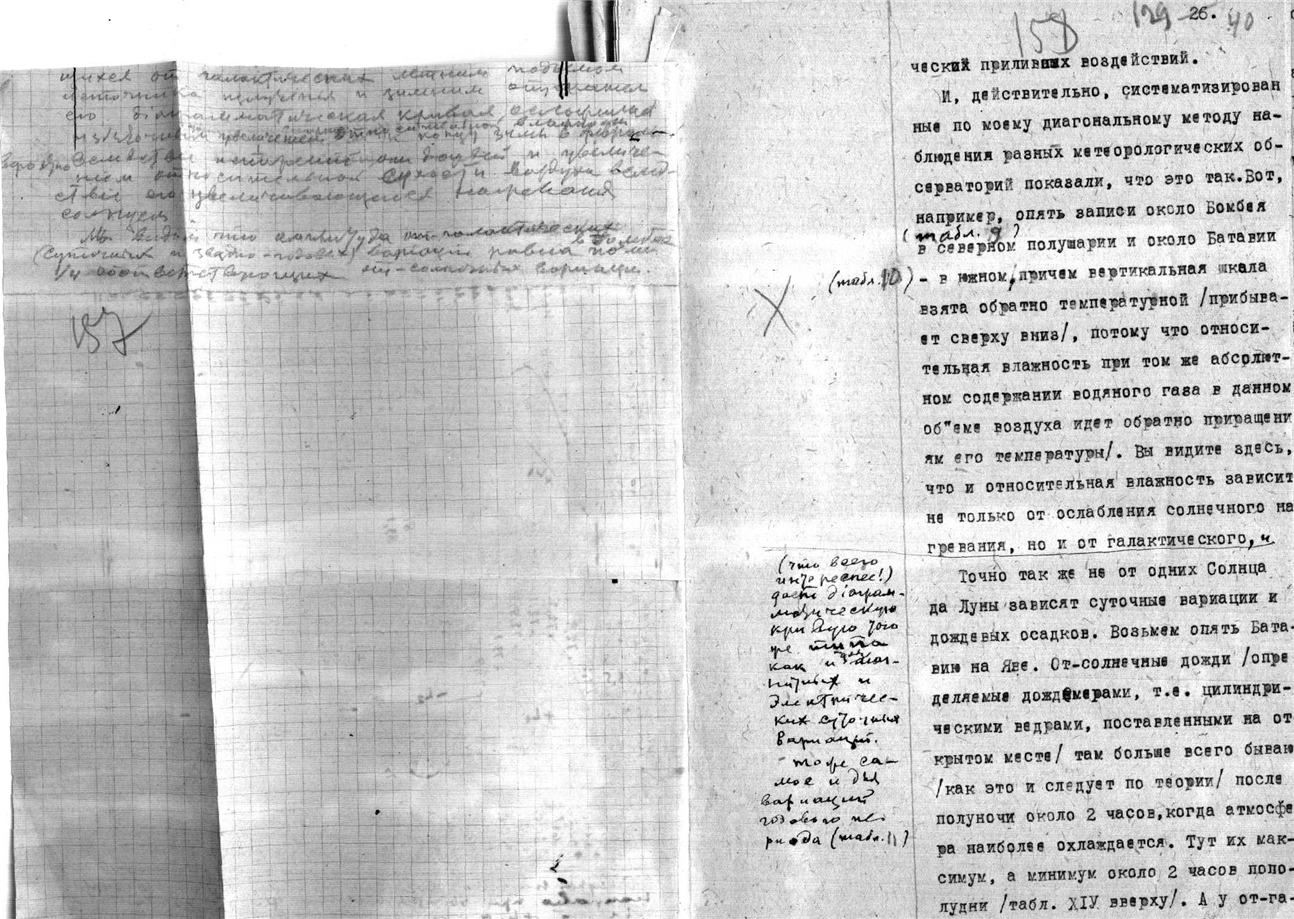 от галактических летним подъемом
источника излучения и зимним опусканием
его диаграмматическая кривая осложнилась
дождей и увеличе-
нием относительной сухости воздуха вслед-
ствие его увеличивающегося нагревания
солнцем
Мы видим что амплитуда от-галактических
вариаций равна почти
1/4 соответствующих от-солнечных вариаций.
157
158
129
26.
40
ческих приливных воздействий.
И, действительно, систематизирован
ные по моему диагональному методу на-
блюдения разных метеорологических об-
серваторий показали, что это так.Вот,
например, опять записи около Бомбея
(табл. 9)
в северном полушарии и около Батавии
(табл. 10)
- в южном, причем вертикальная шкала
взята обратно температурной /прибыва-
ет сверху вниз/, потому что относи-
тельная влажность при том же абсолют-
ном содержании водяного газа в данном
об"еме воздуха идет обратно приращени
ям его температуры/. Вы видите здесь,
что и относительная влажность зависит
не только от ослабления солнечного на
гревания, но и от галактического, и
(что всего
интереснее!)
дает диаграм-
матическую
кривую того
же типа
как и для маг-
нитных и
электричес-
ких суточных
вариаций.
- тоже са-
мое и для
вариаций
годового пе-
риода (табл. 11)
Точно так же не от одних Солнца
да Луны зависят суточные вариации и
дождевых осадков. Возьмем опять Бата-
вию на Яве. От-солнечные дожди /опре
деляемые дождемерами, т.е. цилиндри-
ческими ведрами, поставленными на от
крытом месте/ там больше всего бываю
/как это и следует по теории/ после
полуночи около 2 часов,когда атмосфе
ра наиболее охлаждается. Тут их мак-
симум, а минимум около 2 часов попо-
лудни /табл. XIV вверху/. А у от-га-